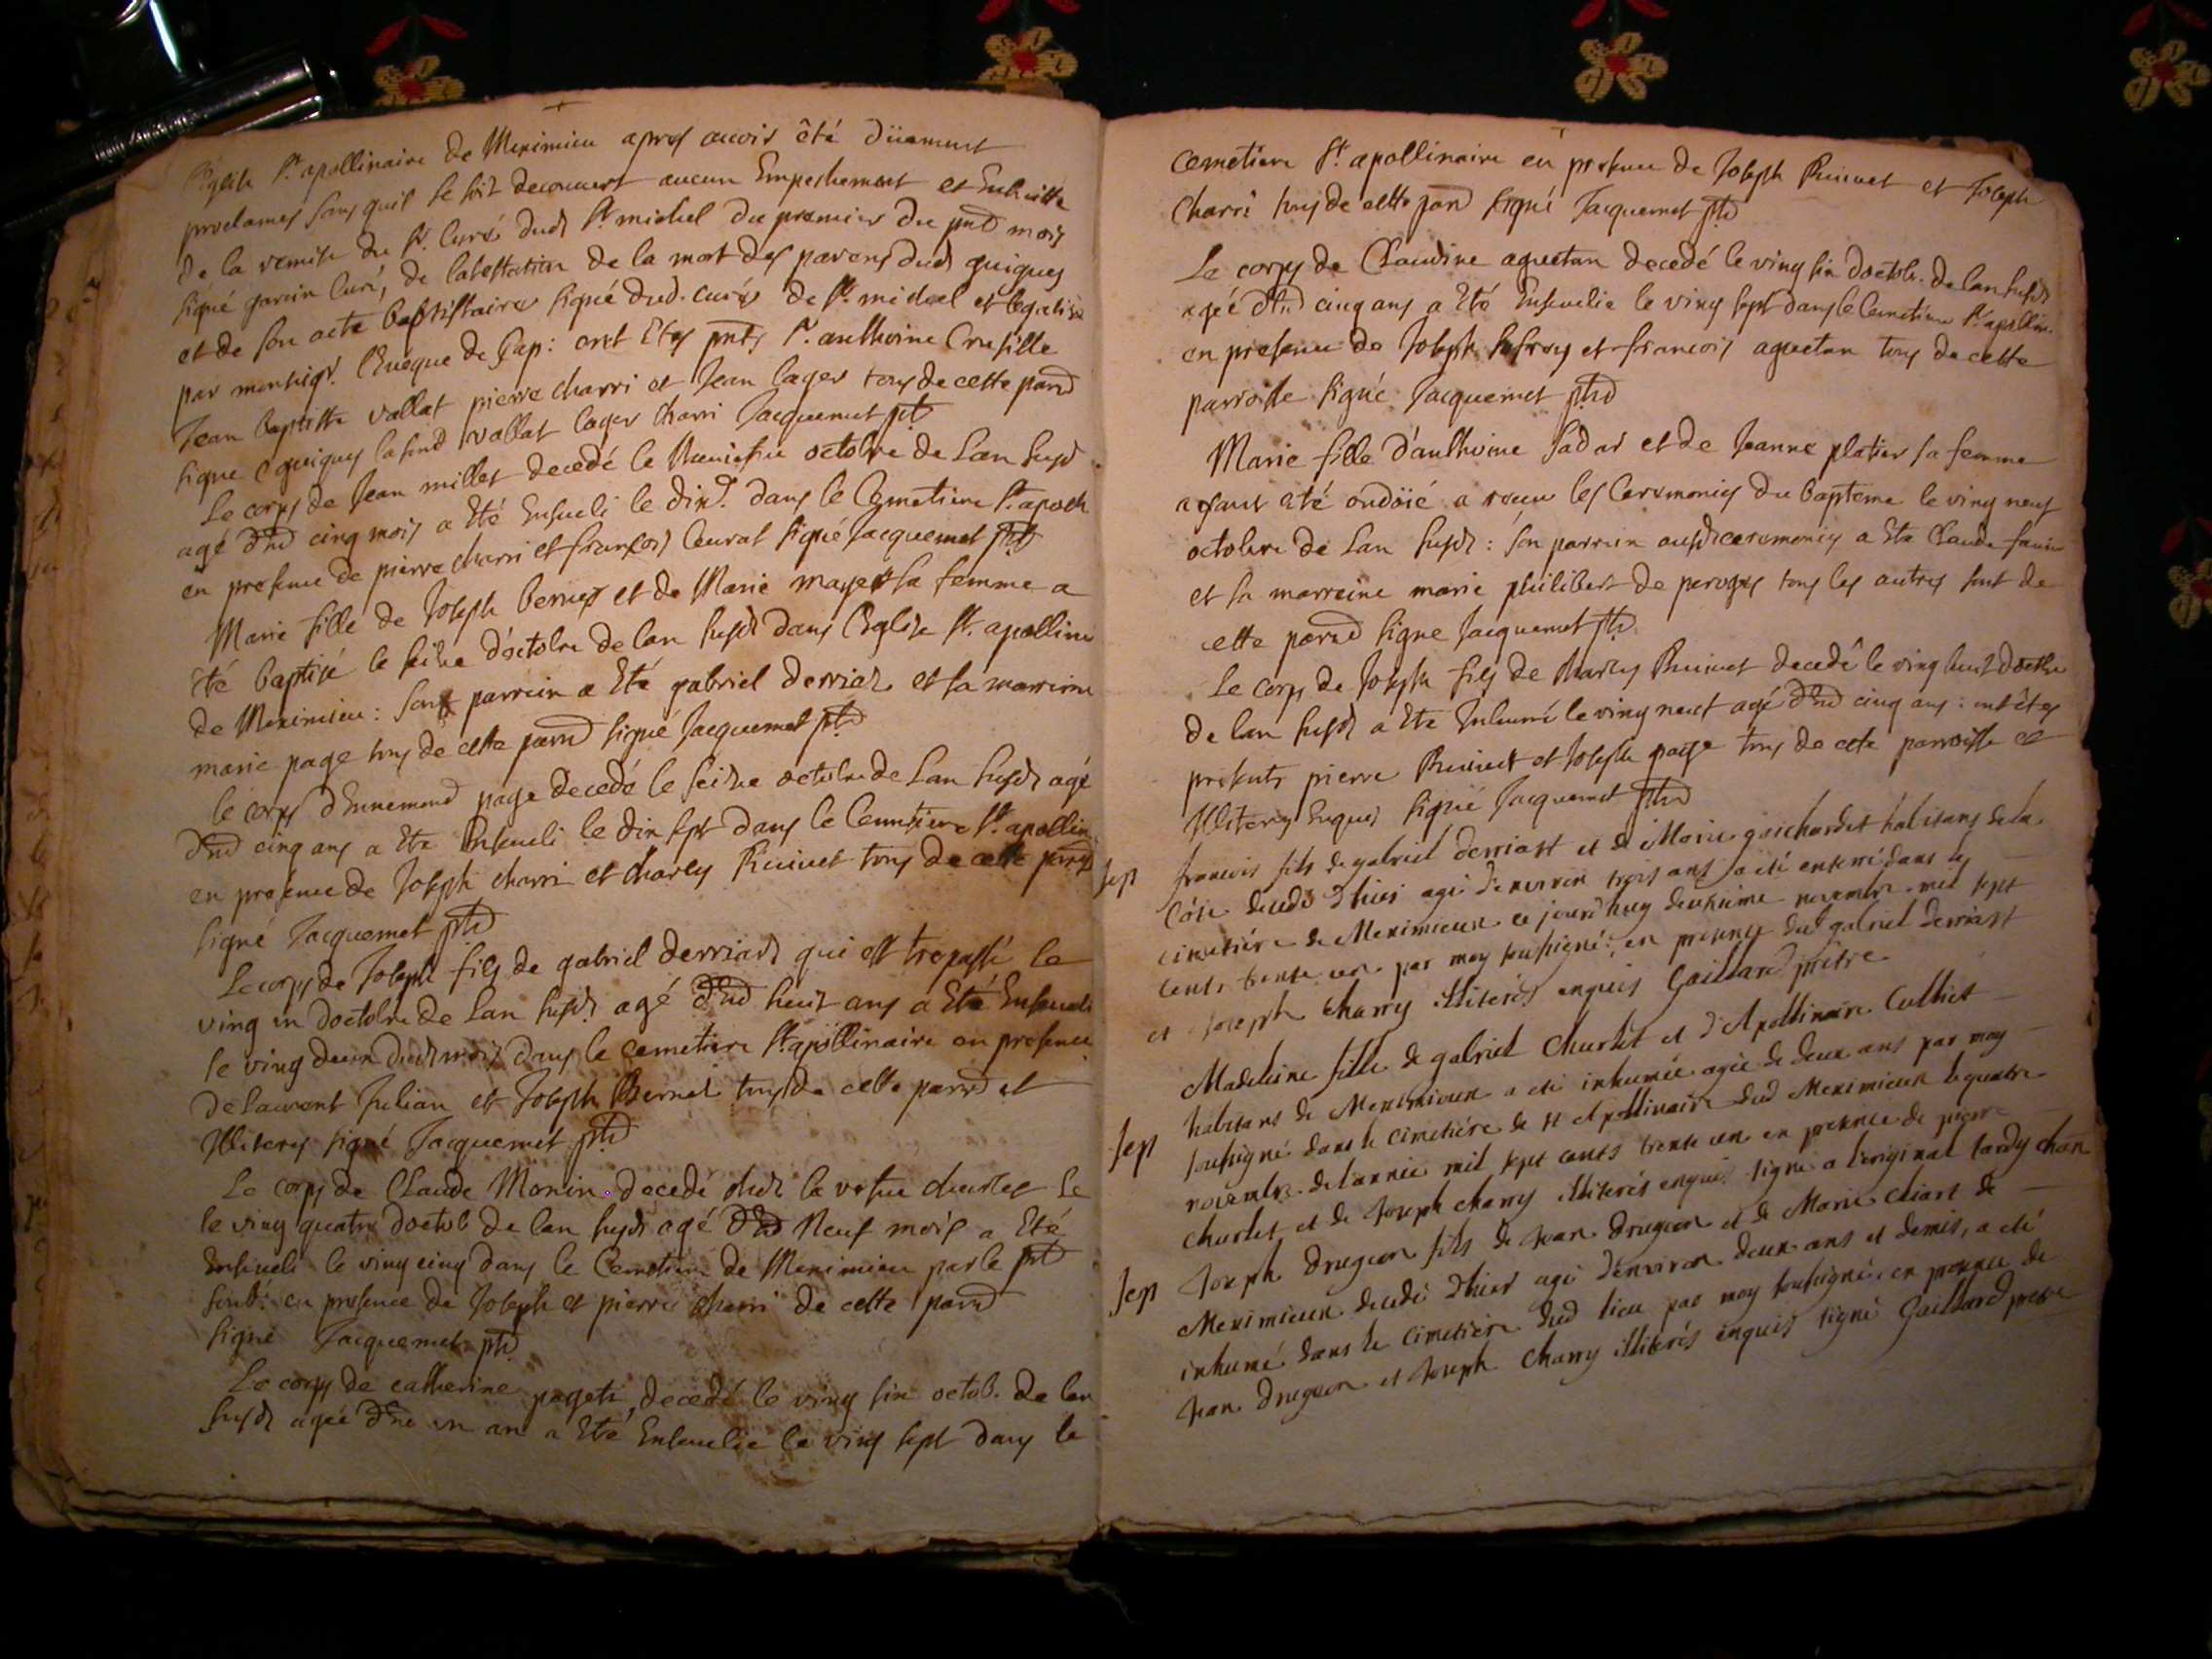 l'Eglise St. apollinaire de Meximieu apres avoir été düement
proclames sans quil se soit decouvert aucun Empeschement et Ensuitte
de la remise du Sr. Curé dudt St michel du premier du pnt mois
signé garcin Curé, de lattestation de la mort des parens dudt guigues
et de son acte baptistaire signé dud. curé de St. michel et legalisé
par monseigr. l'Eveque de Gap: ont Etes pnts Sr. anthoine Crusille
Jean baptiste vallat pierre charri et Jean lager tous de cette parr
signe guigues vallat lager charri Jacquemet ptre
Le corps de Jean millet decedé le octobre de Lan susd
agé d'En cinq mois a Eté Enseveli le dixt. dans le Cemetiere St. apoll
en presence de pierre charri et françois Ceurat signé Jacquemet ptre
Marie fille de Joseph bernet et de Marie mayet sa femme a
Eté baptisé le seize d'octobre de lan susdt dans l'Eglise St. apollin
de Meximieu: son parrein a Eté gabriel derriaz et sa marreine
marie page tous de cette parr signé Jacquemet ptre
le corps d'Ennemond page decedé le seize octobre de Lan susdt agé
d'En cinq ans a Ete Enseveli le dix sept dans le Cemetiere St. apollin
en presence de Joseph charri et charles Ruivet tous de cette parr
signé Jacquemet ptre
Le corps de Joseph fils de gabriel derriard qui est trepassé le
ving un doctobre de Lan susdt. agé d'En huit ans a Eté Enseveli
le ving deux dudt mois dans le cemetiere St. apollinaire en presence
de Laurent Julian et Joseph Bernet tous de cette parr et
Illiteres signé Jacquemet ptre
Le corps de Claude Monin decedé chez la vefue charles Le
le ving quatre doctob de lan susdt agé d'En Neuf mois a Eté
Enseveli le ving cinq dans le Cemetiere de Meximieu par le ptre
soub: en presence de Joseph et pierre charri de cette parr
signé Jacquemet ptre
Le corps de catherine pageti, decedé le ving six octob. de lan
susdt agée d'En un an a Eté Ensevelie le ving sept dans le
cemetiere St. apollinaire en presence de Joseph Ruivet et Joseph
Charri tous de cette parr signé Jacquemet ptre
Le corps de Claudine aguetan decedé le ving six doctob. de lan susdt
agée d'En cinq ans a Eté Ensevelie le ving sept dans le Cemetiere St. apollin.
en presence de Joseph Jefroy et francois aguetan tous de cette
parroisse signé Jacquemet ptre
Marie fille d'anthoine sadar et de Jeanne platier sa femme
ayant eté ondoïé a receu les Ceremonies du bapteme le ving neuf
octobre de Lan susdt: son parrein ausdt ceremonies a Ete Claude
et sa marreine marie philibert de peroges tous les autres sont de
cette parr signe Jacquemet ptre
Le corps de Joseph fils de charles Ruivet decedé le ving huit doctbre
de lan susdt a Ete Inhumé le ving neuf agé d'En cinq ans: ont êtes
presents pierre Ruivet et Joseph page tous de cette parroisse et
Illiteres Enquis signé Jacquemet ptre
sep francois fils de gabriel derriast et de Marie guichardet habitans de la
Côte decedé d'hier agé d'environ trois ans a eté enterré dans le
cimetiére de Meximieux ce jourd'huy deuxieme novembre mil sept
cents trente un par moy soussigné: en presence dud gabriel derriast
et Joseph charry illiterés enquis Gaillard prêtre
Madeleine fille de gabriel Churlet et d'Apollinaire Culliet
habitans de Meximieux a eté inhumée agée de deux ans par moy
sep soussigné dans le cimetiére de St Apollinaire dud Meximieux le quatre
novembre de l'année mil sept cents trente un en presence de pierre
Churlet et de Joseph charry illiterés enquis signé a l'original tardy chan
sep Joseph Drugeon fils de Jean Drugeon et de Marie Chiart de
Meximieux decedé d'hier agé d'environ deux ans et demis, a eté
inhumé dans le cimetiére dud lieu par moy soussigné en presence de
Jean Drugeon et Joseph Charry illiterés enquis signé Gaillard pretre